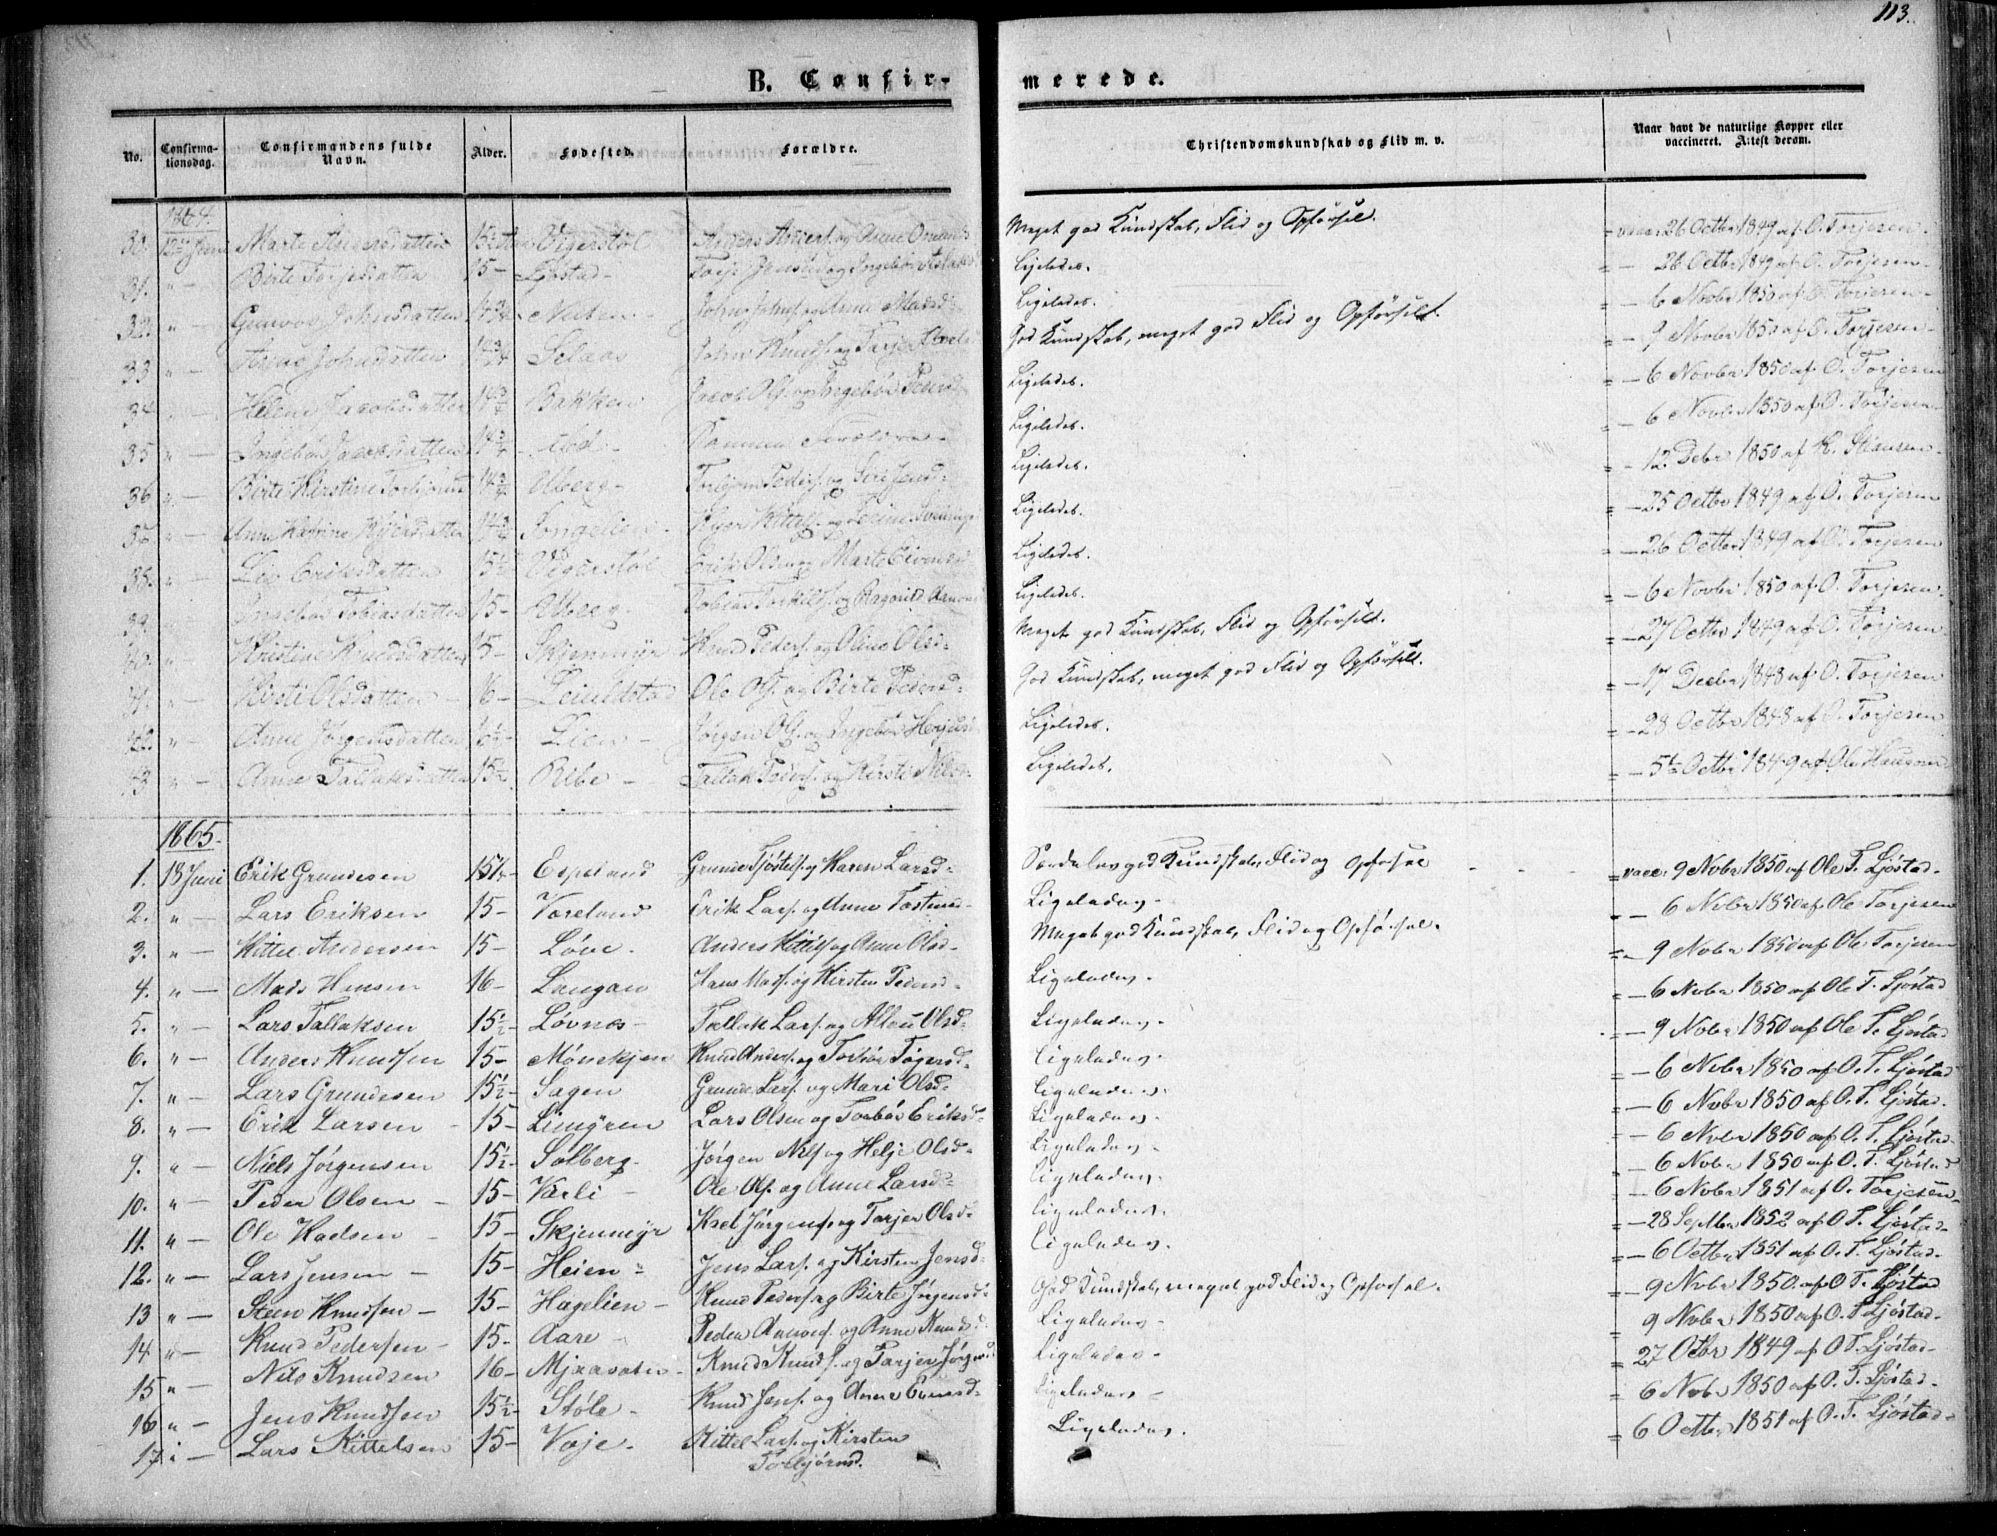 113.
B. Confirmerede.
No. | Confirmationsdag. | Confirmandens fulde Navn. | Alder. | Fødested. | Forældre. | Christendomskundskab og Flid m. v. | Naar havt de naturlige Kopper eller vaccineret. Attest derom.
1864.
30. 12te Juni Marte Andersdatter 15½ Vigerstøl Anders Anders. og Anne Meget god Kundskab, Flid og Opførsel. vacc. 26 Octbr 1849 af O. Torjesen
31. " — Birte Torjesdatter 15 — Ljøstad — Torje Jensen og Ingebør Ligeledes. — 26 Octbr 1849 af O. Torjesen
32. " — Gunvor Johnsdatter 14¾ John Johns. og Anne Madsd. Ligeledes. — 6 Novbr 1850 af O. Torjesen
33 " — Anne Johnsdatter 14¾ Selaas John Knuds. og Tarjer God Kundskab, meget god Flid og Opførsel. — 9 Novbr 1850 af O. Torjesen
34 Helene Jacobsdatter 14¾ Bakken Jacob Ols. og Ingebør Ligeledes. — 6 Novbr 1850 af O. Torjesen
35 " — Ingebør Jacobsdatter 14¾ ibd. Samme Forældre Ligeledes. — 6 Novbr 1850 af O. Torjesen
36 " — Birte Kirstine 14¾ Ulberg — Torbjørn Peders. og Siri Jensd. Ligeledes. — 12 Debr 1850 af K. Steansen
37. " — Anne 14¾ og Ligeledes. — 25 Octbr 1849 af O. Torjesen
38. " — Liv Eriksdatter 15½ Vigerstøl Erik Olsen og Marte Eivindsd. Ligeledes. — 26 Octbr 1849 af O. Torjesen
39. Ingebør Tobiasdatter 15 — Ulberg — Tobias Torkilds. og Ragnild Ligeledes. — 6 Novbr 1850 af O. Torjesen
40. " — Kristine Knudsdatter 15 — Skjenmyr Knud Peders. og Oline Olsd. Meget god Kundskab, Flid og Opførsel. — 27 Octbr 1849 af O. Torjesen
41. " — Kirsti Olsdatter 16 — Leiulstad Ole Ols. og Birte Pedersd. God Kundskab, meget god Flid og Opførsel. — 17 Decbr 1848 af O. Torjesen
42. " — Anne Jørgensdatter Lien — Jørgen Ols. og Ingebør Ligeledes. — 28 Octbr 1848 af O. Torjesen
43 " — Anne Tallaksdatter 15½ Ribe — Tallak Peders. og Kirsti Nilsd. Ligeledes. — Octbr 1849 af Ole
1865.
1. 18 Juni Erik Grundesen 15½ Espeland Grunde Tjøstels. og Karen Larsd. Særdeles god Kundskab, Flid og Opførsel vacc. 9 Nobr 1850 af Ole T. Ljøstad.
2. " — Lars Eriksen 15 — Vareland Erik Lars. og Anne Ligeledes — 6 Nobr 1850 af Ole Torjesen
3. " — Kittel Andersen 15 — Løve. Anders Kittels. og Anne Olsd. Meget god Kundskab, Flid og Opførsel. — 9 Nobr 1850 af Ole Torjesen
4. " — Mads Hansen 16 — Langan Hans Mads. og Kirsten Pedersd. Ligeledes — 6 Nobr 1850 af Ole T. Ljøstad
5. " — Lars Tallaksen 15½ Løvnes — Tallak Lars. og Olsd. Ligeledes — 9 Nobr 1850 af Ole T. Ljøstad
6. " — Anders Knudsen 15 — Mønekjen Knud Anders. og Torbør Ligeledes. — 6 Nobr 1850 af O. T. Ljøstad
7. " — Lars Grundesen 15½ Sagen Grunde Lars. og Mari Olsd. Ligeledes. — 6 Nobr 1850 af O. T. Ljøstad.
8. " — Erik Larsen — 15 — Limyren Lars Olsen og Torbør Eriksd. Ligeledes. — 6 Nobr 1850 af O. T. Ljøstad.
9. " — Niels Jørgensen 15½ Sølberg Jørgen Nils. og Helje Olsd. Ligeledes — 6 Nobr 1850 af O. T. Ljøstad
10. " — Peder Olsen — 15 — Værli — Ole Ols. og Anne Larsd. Ligeledes. — 6 Nobr 1851 af O. Torjesen
11. " — Ole — 15 — Skjenmyr Jørgens. og Tarjer Olsd. Ligeledes. — 28 Septbr 1852 af O T. Ljøstad
12. " — Lars Jensen — 15 — Heien — Jens Lars. og Kirsten Jensd. Ligeledes. — 6 Octbr 1851 af O. T. Ljøstad.
13 " — Steen Knudsen — 15 — Hagelien — Knud Peders. og Birte Jørgensd. God Kundskab, meget god Flid og Opførsel. — 9 Nobr 1850 af O T. Ljøstad
14 " — Knud Pedersen — 15 — Aare — Peder og Anne Knudsd. Ligeledes — 9 Nobr 1850 af O. T Ljøstad.
15 " — Nils Knudsen 16 — Mjaavatn — Knud Knuds. og Tarjer Jørgensd. Ligeledes — 27 Octbr 1849 af O T. Ljøstad
16 " — Jens Knudsen 15½ Støle — Knud Jens. og Anne Ligeledes — 6 Nobr 1850 af O. T. Ljøstad.
17 " — Lars Kittelsen 15 — Væje. Kittel Lars. og Kirsten Ligeledes. 6 Octbr 1851 af O. T. Ljøstad
Torbjørnsd.